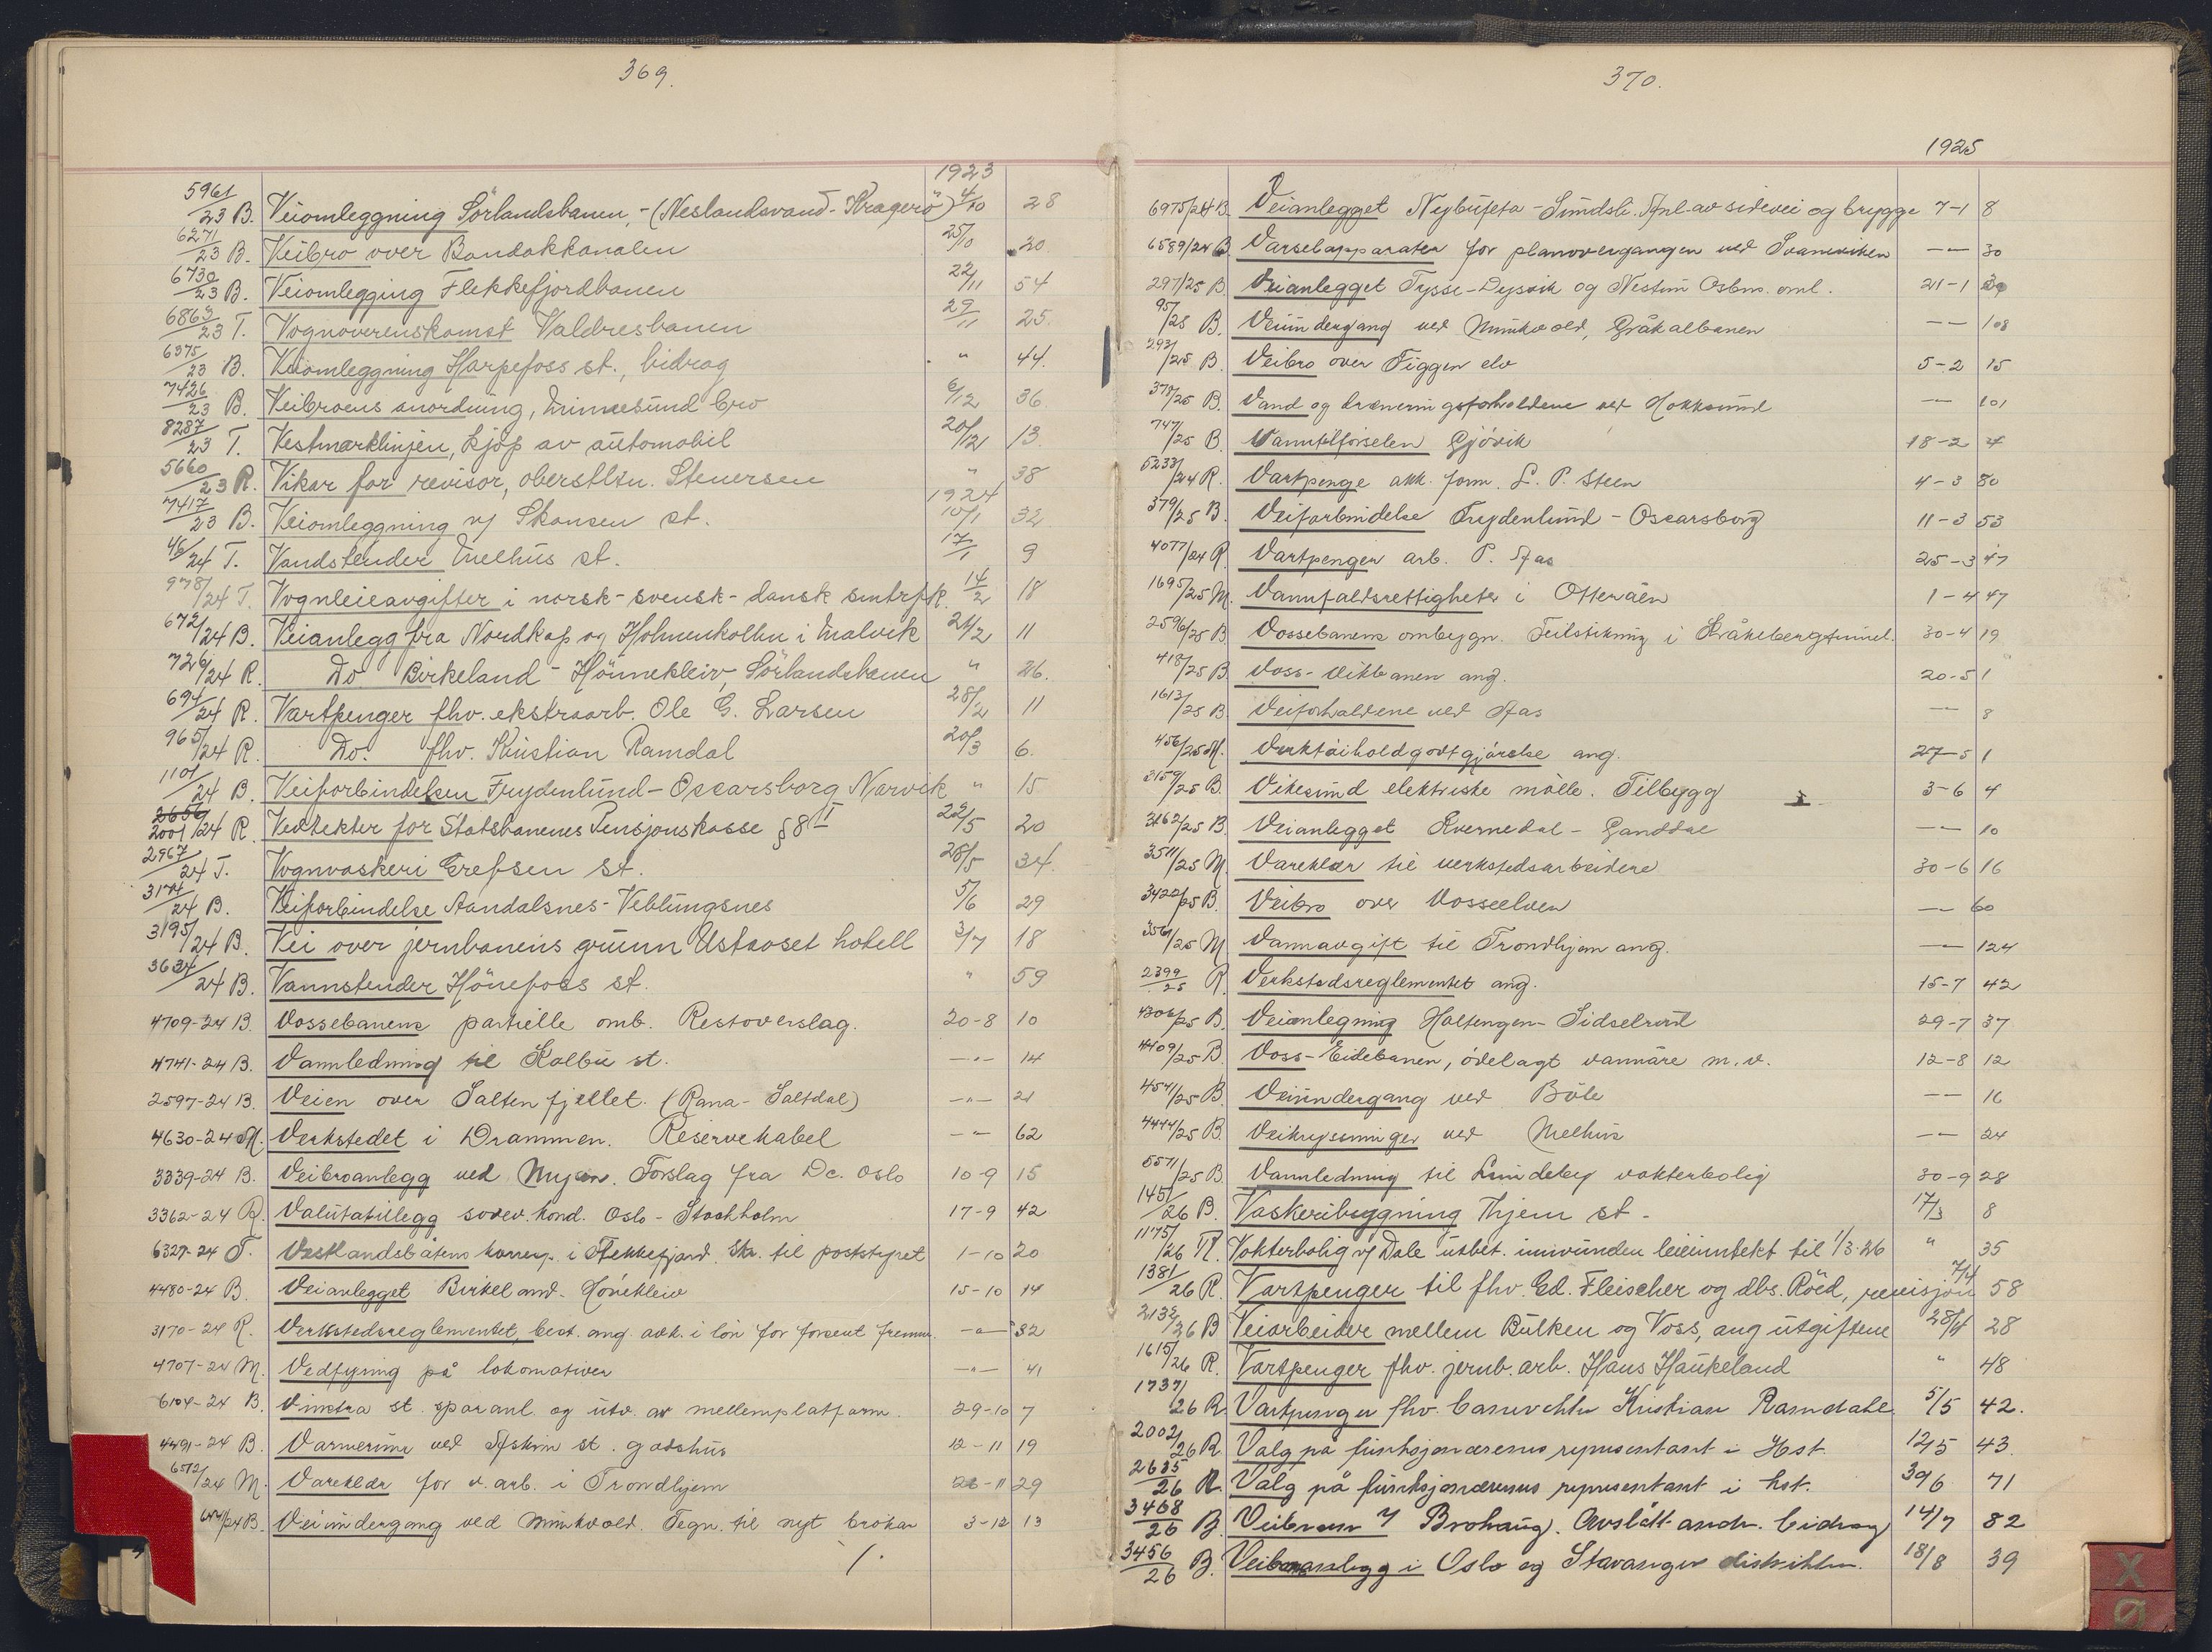 369.
1923
5961/23 B. Veiomleggning Sörlandsbanen,-(Neslandsvand-Kragerö) 4/10 28
6271/23 B. Veibro over Bandakkanalen 25/10 20
6730/23 B. Veiomlegging Flekkefjordbanen 22/11 54
6863/23 T. Vognoverenskomst Valdresbanen 29/11 25.
6375/23 B. Veiomleggning Harpefoss st., bidrag " 44.
7426/23 B. Veibroens anordning, Minnesund bro 6/12 36
8287/23 T. Vestmarklinjen, kjöp av automobil 20/12 13.
5660/23 R. Vikar for revisor, oberstltn. Stenersen " 38
1924
7417/23 B. Veiomleggning v/ Skansen st. 10/1 32
46/24 T. Vandstender Melhus st. 17/1 9
978/24 T. Vognleieavgifter i norsk-svensk-dansk smtrfk. 14/2 18
672/24 B. Veianlegg fra Nordkap og Holmenkollen i Malvik 21/2 11
726/24 R. Do. Birkeland - Hönnekleiv, Sörlandsbanen " 26.
694/24 R. Vartpenger fhv. ekstraarb. Ole G. Larsen 28/2 11
965/24 R. Do. fhv. Kristian Ramdal 20/3 6.
1101/24 B. Veiforbindelsen Frydenlund-Oscarsborg Narvik " 15
2001/24 R. Vedtekter for Statsbanenes Pensjonskasse §8 II 22/5 20
2967/24 T. Vognvaskeri Grefsen st. 28/5 34.
3174/24 B. Veiforbindelse Aandalsnes-Veblungsnes 5/6 29
3195/24 B. Vei over jernbanens grunn Ustaoset hotell 3/7 18
3634/24 B. Vannstender Hönefoss st. " 59
4709-24 B. Vossebanens partielle omb. Restoverslag. 20-8 10
4741-24 B. Vannledning til Kolbu st. -"- 14
2597-24 B. Veien over Saltenfjellet. (Rana-Saltdal) -"- 21
4630-24 M. Verkstedet i Drammen. Reservekabel -"- 62
3339-24 B. Veibroanlegg ved Mysen. Forslag fra Dc. Oslo 10-9 15
3362-24 R. Valutatillegg sovev. kond. Oslo-Stockholm 17-9 42
6327-24 T. Vestlandsbåtens korresp. i Flekkefjord. Skr. til poststyret 1-10 20
4480-24 B. Veianlegget Birkeland-Hönekleiv 15-10 14
3170-24 R. Verkstedsreglementet, best. ang. avk. i lön for forsent fremm. -"- 32
4707-24 M. Vedfyring på lokomotiver -"- 41
6104-24 B. Vinstra st. sporanl. og utv. av mellemplatform. 29-10 7
4491-24 B. Varmerum ved Askim st. godshus 12-11 19
6512/24 M. Vareklær for v. arb. i Trondhjem 26-11 29
B. Veiundergang ved Munkvold. Tegn. til nyt brokar 3-12 13
370.
1925
6975/24 B. Veianlegget Nybusæta-Sundsli. Anl. av sidevei og brygge 7-1 8
6589/24 B Varselapparater for planovergangen ved Svaneviken -"- 30
297/25 B Veianlegget Tysse-Dysvik og Nestun Osbns. oml. 21-1
95/25 B. Veiundergang ved Munkvold, Gråkalbanen -"- 108
293/25 B Veibro over Figgen elv 5-2 15
370/25 B. Vand og dræneringsforholdene ved Hokksund -"- 101
747/25 B. Vanntilförselen Gjövik 18-2 4
5233/24 R. Vartpenge akk. form. L. P. Steen 4-3 80
379/25 B. Veiforbindelse Frydenlund-Oscarsborg 11-3 53
4077/24 R. Vartpenger arb. P. Aas 25-3 47
1695/25 M. Vannfaldsrettigheter i Otteråen 1-4 47
2596/25 B Vossebanens ombygn. Feilstikning i Kråkebergtunnel. 30-4 19
418/25 B Voss-Eidebanen ang. 20-5 1
1613/25 B Veiforholdene ved Aas -"- 8
456/25 M. Verktöiholdgodtgjörelse ang. 27-5 1
3159/25 B. Vikesund elektriske mölle. Tilbygg 3-6 4
3162/25 B Veianlegget Kvernedal-Ganddal -"- 10
3511/25 M Vareklær til verkstedsarbeidere 30-6 16
3422/25 B. Veibro over Vosseelven -"- 60
3561/25 M Vannavgift til Trondhjem ang. -"- 124
2399/25 R. Verkstedsreglementet ang. 15-7 42
4306/25 B. Veiomlegning Haltengen-Sidselrud 29-7 37
4409/25 B Voss-Eidebanen, ödelagt vannåre m.v. 12-8 12
4541/25 B. Veiundergang ved Böle -"- 16
4444/25 B. Veikrysninger ved Melhus -"- 24
5571/25 B. Vannledning til Lindeby vokterbolig 30-9 28
145/26 B. Vaskeribygning Thjem st. 17/3 8
1175/26 R. Vokterbolig v/ Dale utbet. innvunden leieinntekt til 1/3-26 " 35
1381/26 R. Vartpenger til fhv. Ed. Fleischer og dbs. Röed, revisjon 7/4 58
2132/26 B Veiarbeider mellem Bulken og Voss, ang utgiftene 28/4 28
1615/26 R. Vartpenger fhv. jernb. arb. Hans Haukeland " 48
1737/26 R. Vartpenger fhv. banevokter Kristian Ramdahl 5/5 42.
2002/26 R. Valg på funksjonærenes representant i Hst. 12/5 43.
2635/26 R. Valg på funksjonærenes representant i hst. 30/6 71
3468/26 B. Veibroen v/ Brohaug. Avslått andr. bidrag 14/7 82
3456/26 B. Veibroanlegg i Oslo og Stavanger distrikter. 18/8 39
X
Ø